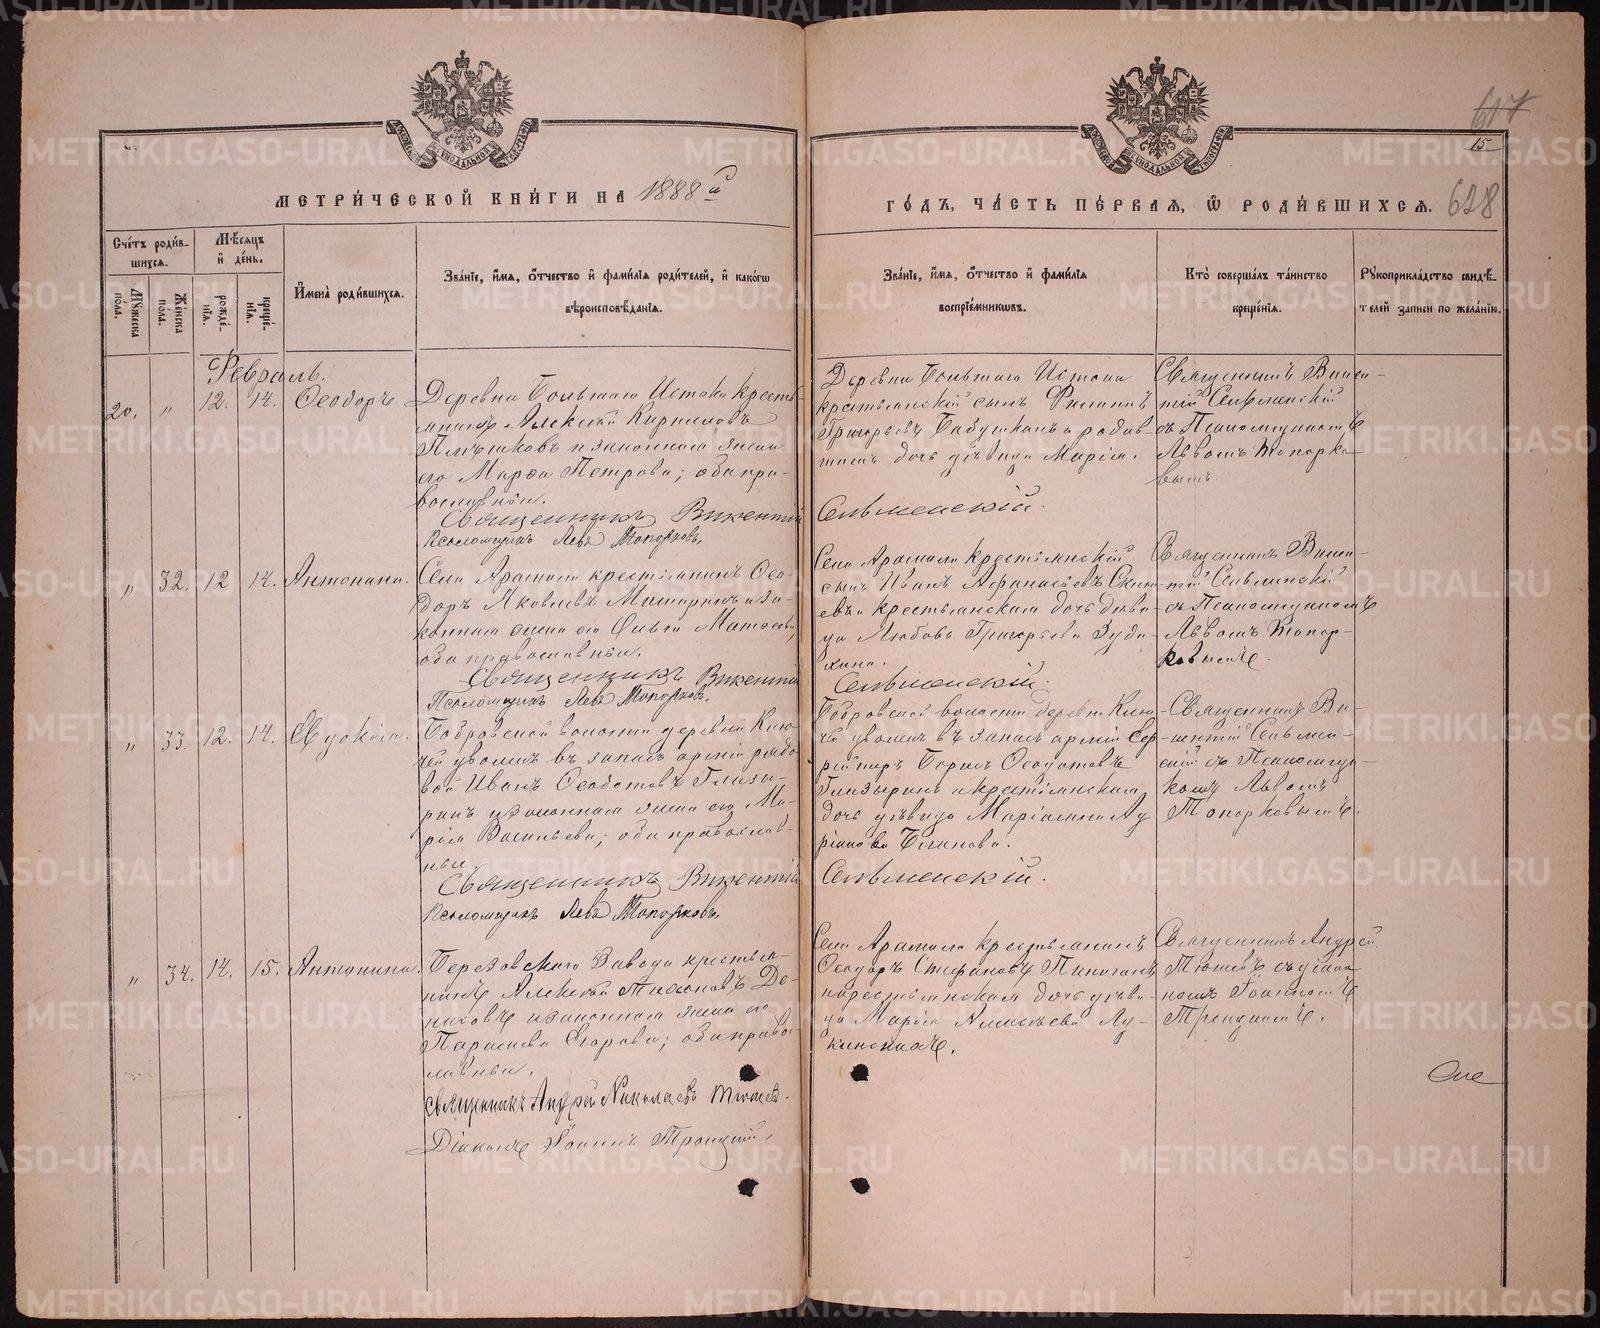 METRIKI.GASO-URAL.RU
617
15
МЕТРИ́ЧЕСКОЙ КНИ́ГИ НА 1888й
ГО́ДЪ, ЧА́СТЬ ПЕ́РВАЯ, Ѡ РОДИ́ВШИХСЯ. 628
Сче́тъ роди́в-
шихся.
Мꙋжеска
по́ла.
Же́нска
по́ла.
Мѣ́сяцъ
и҆ де́нь.
рожде́-
нїя.
креще́-
нїя.
И҆мена̀ роди́вшихся.
Зва́нїе, и҆́мя, ѻ҆́тчество и҆ фами́лїя роди́телей, и҆ како́гѡ
вѣроисповѣ́данїя.
Зва́нїе, и҆́мя, ѻ҆́тчество и҆ фами́лїя
воспрїе́мникѡвъ.
Кто̀ соверша́лъ та́инство
креще́нїя.
Рꙋкоприкла́дство свидѣ́-
телей за́писи по жела́нїю.
Февраль.
20. " 12. 14. Ѳеодоръ
Деревни Большаго Истока кресть-
янинъ Алексѣй Кирилловъ
и законная жена
его Марѳа Петрова; оба пра-
вославные.
Священникъ Викентій Сельменскій.
Псаломщикъ Левъ Топорковъ.
Деревни Большаго Истока
крестьянскій сынъ Филиппъ
Григорьевъ Бабушкинъ и
дочь дѣвица Марія.
Священникъ Викен-
тій Сельменскій
съ Псаломщикомъ
Львомъ Топорко-
вымъ.
" 32. 12 14. Антонина.
Села Арамили крестьянинъ Ѳео-
доръ Яковлевъ и за-
конная жена его Ольга Матвѣева,
оба православные.
Священникъ Викентій Сельменскій.
Псаломщикъ Левъ Топорковъ.
Села Арамили крестьянскій
сынъ Иванъ Аѳанасьевъ
и крестьянская дочь дѣви-
ца Любовь Григорьева
Священникъ Викен-
тій Сельменскій
съ Псаломщикомъ
Львомъ Топор-
ковымъ.
" 33. 12. 14. Евдокія.
Бобровской волости деревни Клю-
чей уволен. въ запасъ арміи рядо-
вой Иванъ Ѳеодотовъ Глазы-
ринъ и законная жена его Ма-
рія Васильева; оба православ-
ные.
Священникъ Викентій Сельменскій.
Псаломщикъ Левъ Топорковъ.
Бобровской волости деревни Клю-
чей уволен. въ запасъ арміи
Борисъ Ѳеодотовъ
Глазыринъ и крестьянская
дочь дѣвица Ад-
ріанова
Священникъ Ви-
кентій Сельмен-
скій съ Псаломщи-
комъ Львомъ
Топорковымъ.
" 34. 14. 15. Антонина.
Березовскаго Завода крестья-
нинъ Алексѣй Тихоновъ
и законная жена его
Параскева Егорова; оба право-
славные.
Священникъ Андрей Николаевъ Тюшевъ.
Діаконъ Іоаннъ Троицкій.
Села Арамили крестьянинъ
Ѳеодоръ Стефановъ
и крестьянская дочь дѣви-
ца Марія Алексѣева Лу-
Священникъ Андрей
Тюшевъ съ діако-
номъ Іоанномъ
Троицкимъ.